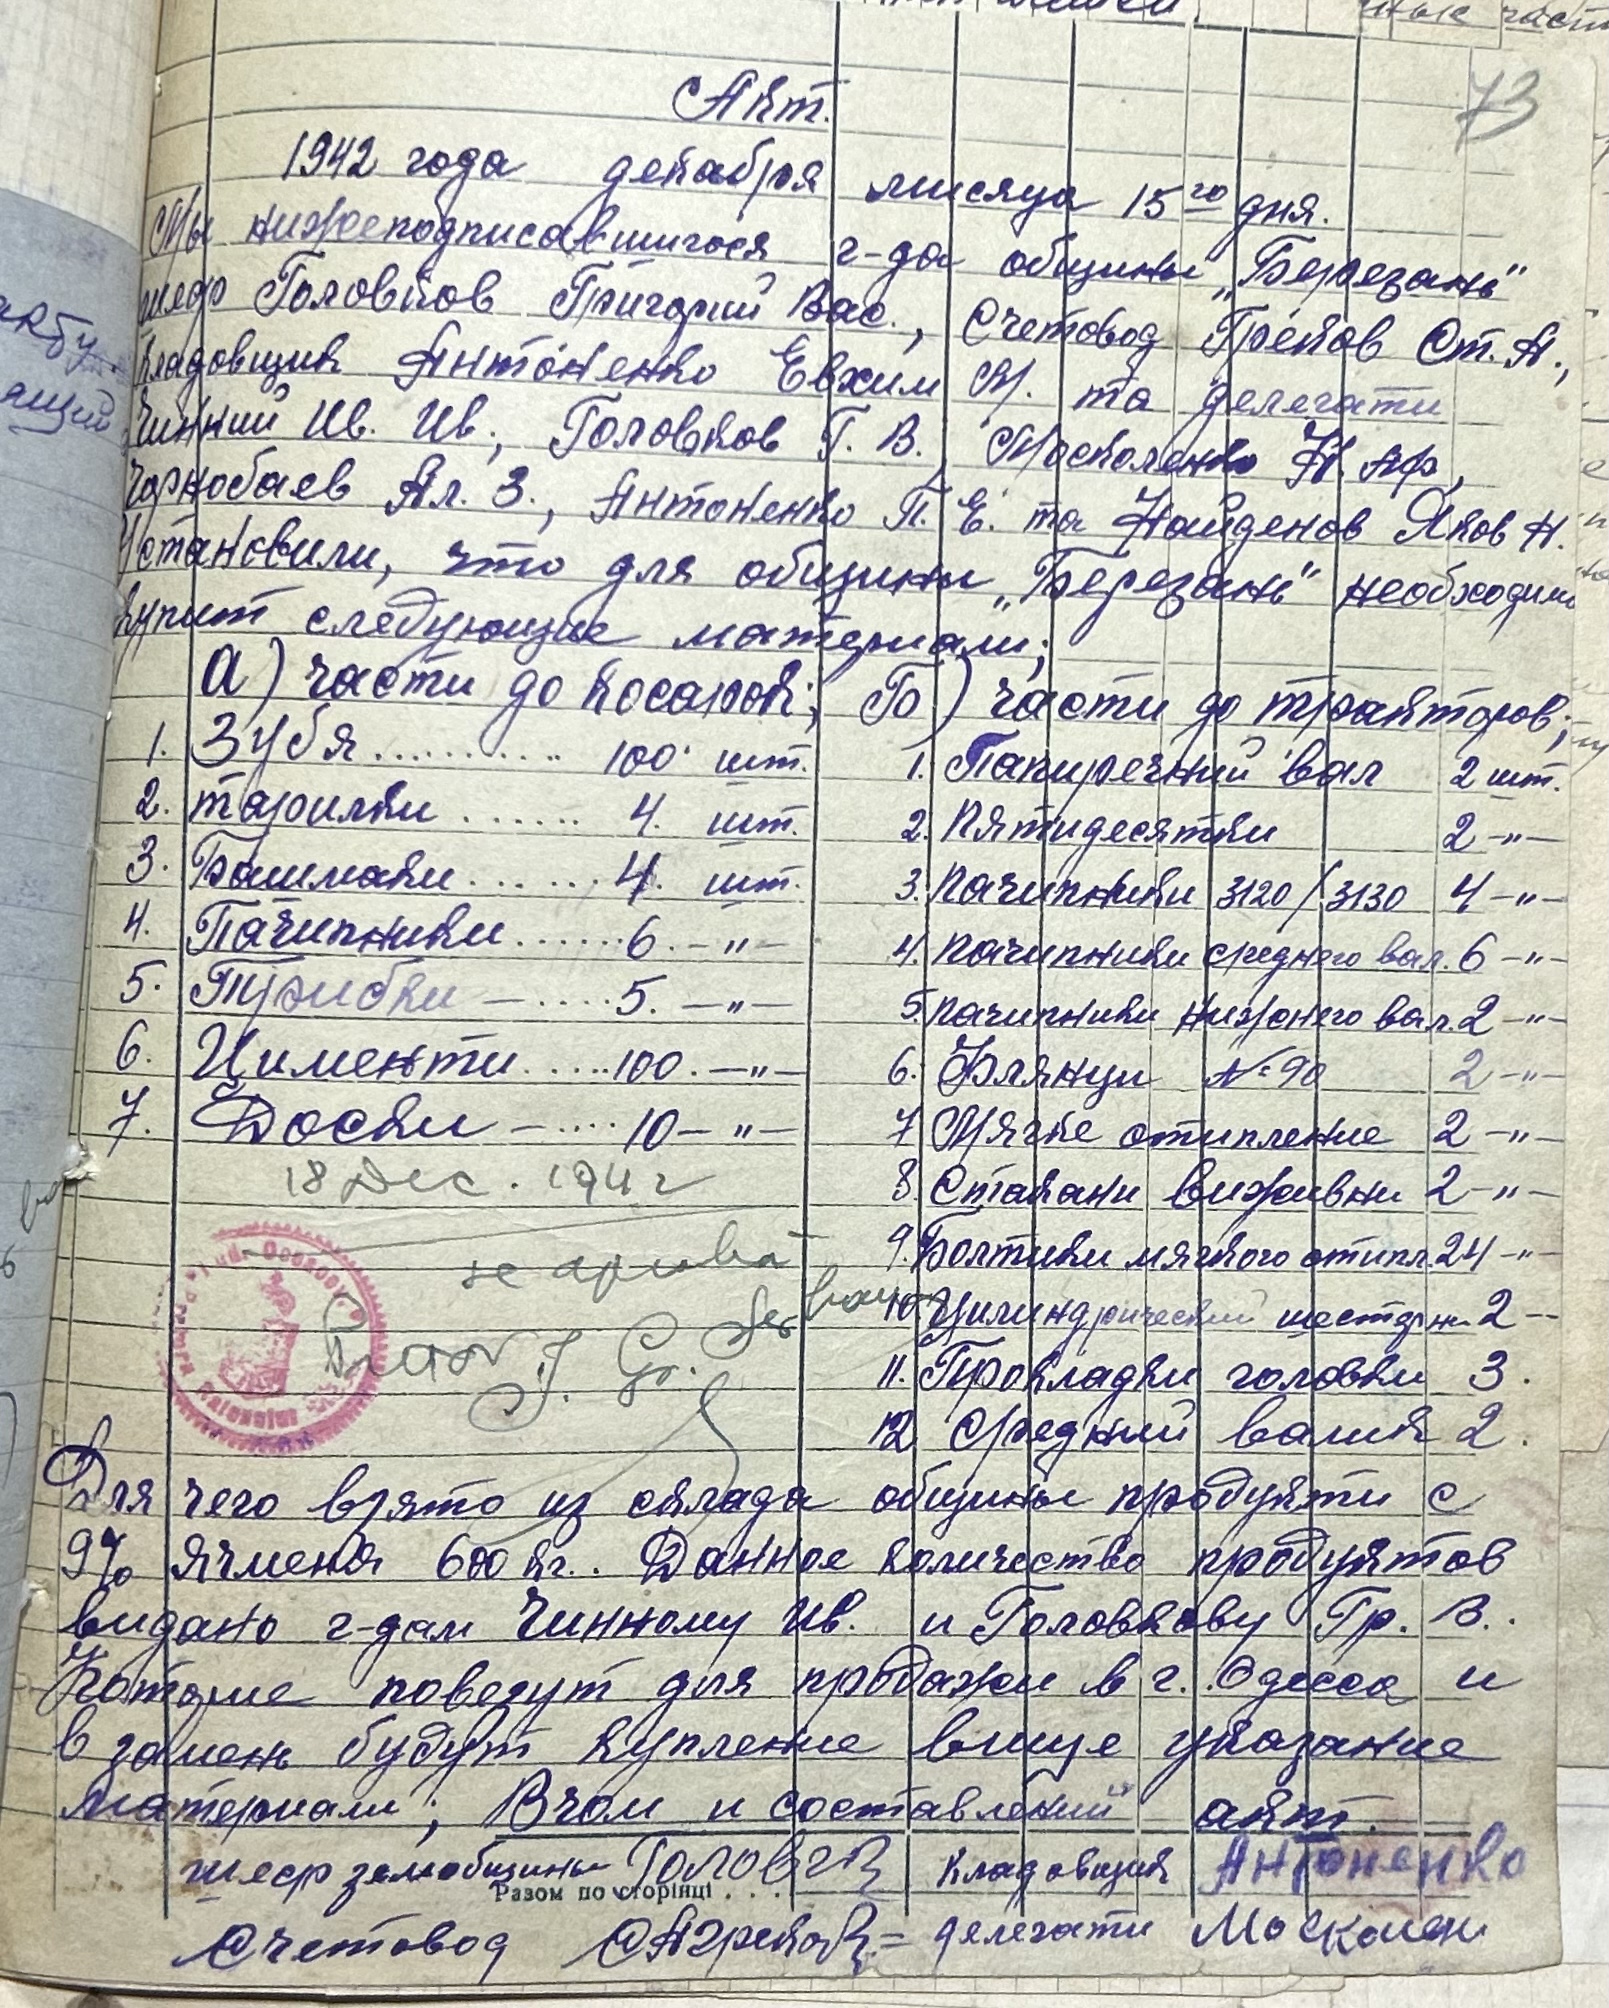 73
Акт.
1942 года декабря мисяца 15го дня.
Мы нижеподписавшигося г-да общины „Березань"
шеф Головков Григорий Вас., Счетовод Греков Ст. А.,
кладовщик Антоненко Евхим М. та делегати
Чинний Ив. Ив., Головков Г. В., Москаленко Н. Аф,
Чорнобаев Ал. З., Антоненко П. Е. та Найденов Яков Н.
Установили, что для общины „Березань" необходимо
купит следующие материали;
а) части до косарок; Б) части до тракторов;
1. Зубя ........... 100 шт.
2. тарилки ....... 4. шт.
3. Башмаки ....... 4. шт.
4. Пачипники ...... 6. -"-
5. Трибки - .... 5. -"-
6. Цименти ..... 100. -"-
7. Доски - .... 10 -"-
1. Папиречний вал 2 шт.
2. Пятидесятки 2 -"-
3. Пачипники 3120/3130 4 -"-
4. Пачипники среднего вал. 6 -"-
5. Пачипники нижнего вал. 2 -"-
6. Флянци №90 2 -"-
7 Мягке отипление 2 -"-
8. Стакани виживни 2 -"-
9. Болтики мягкого отипл. 24 -"-
10. Цилиндрический шестерни 2 --
11. Прокладки головки 3.
12 Средний валик 2.
18 Dec. 1942
se aprobă
Для чего взято из склада общины продукти с
9% ячменя 600 кг.. Данное количество продуктов
видано г-дам Чинному Ив. и Головкову Гр. В.
Которие повезут для продажи в г. Одесса и
в замень будут купление више указание
материали; Вчом и составлений акт.
шеф земобщины Головков кладовщик Антоненко
Разом по сторінці . . .
Счетовод САГреков = делегати Москален